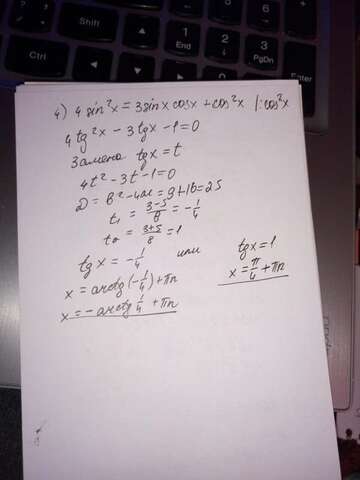 Shift
Ctrl
Fn
1
End
2
3
PgDn
0
Ins
4) 4 sin²x = 3 sinx cosx + cos²x |: cos²x
4 tg²x - 3 tgx - 1 = 0
Замена tgx = t
4t² - 3t - 1 = 0
D = b² - 4ac = 9 + 16 = 25
t₁ = (3-5)/8 = -1/4
t₂ = (3+5)/8 = 1
tgx = -1/4 или tgx = 1
x = arctg(-1/4) + πn x = π/4 + πn
x = -arctg 1/4 + πn